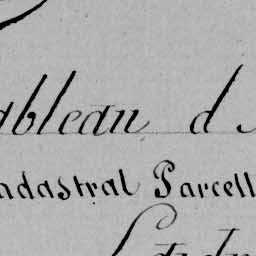 ableau d
adastral Parcell